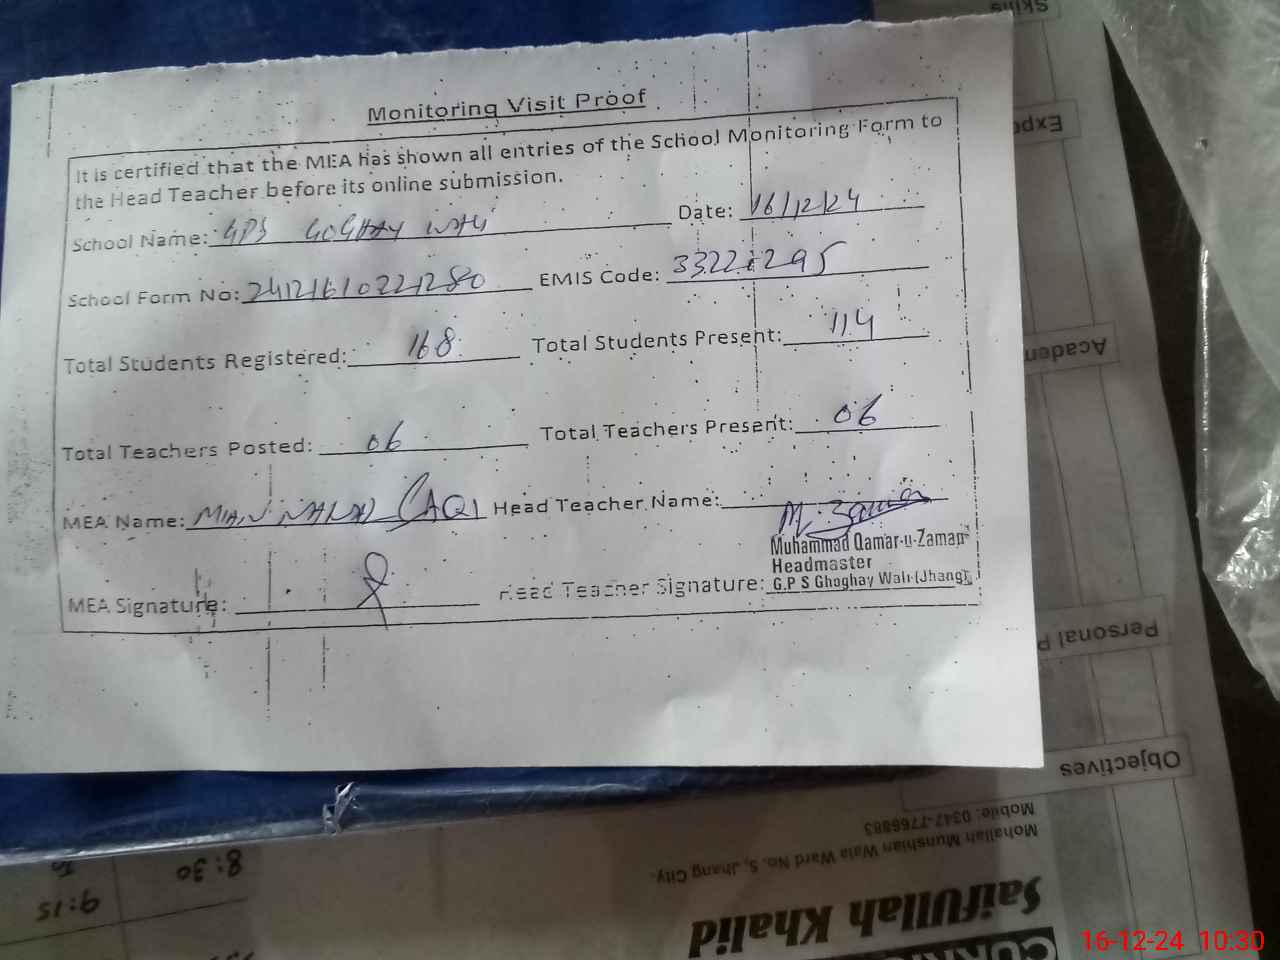 Monitoring Visit Proof
It is certified that the MEA has shown all entries of the School Monitoring Form to
the Head Teacher before its online submission.
School Name: GPS GOGHAY WALI Date: 16/12/24
School Form No: 24121610221280 EMIS Code: 33221295
Total Students Registered: 168 Total Students Present: 114
Total Teachers Posted: 06 Total Teachers Present: 06
MEA Name: MIAN Head Teacher Name:
Muhammad Qamar-u-Zaman
Headmaster
MEA Signature: Head Teacher Signature: G.P S Ghoghay Wali (Jhang)
Skills
Expe
Academ
Personal P
Objectives
Mobile: 0347-7766883
Mohallah Munshian Wala Ward No. 5, Jhang City.
Saifullah Khalid
8:30
To
9:15
16-12-24 10:30